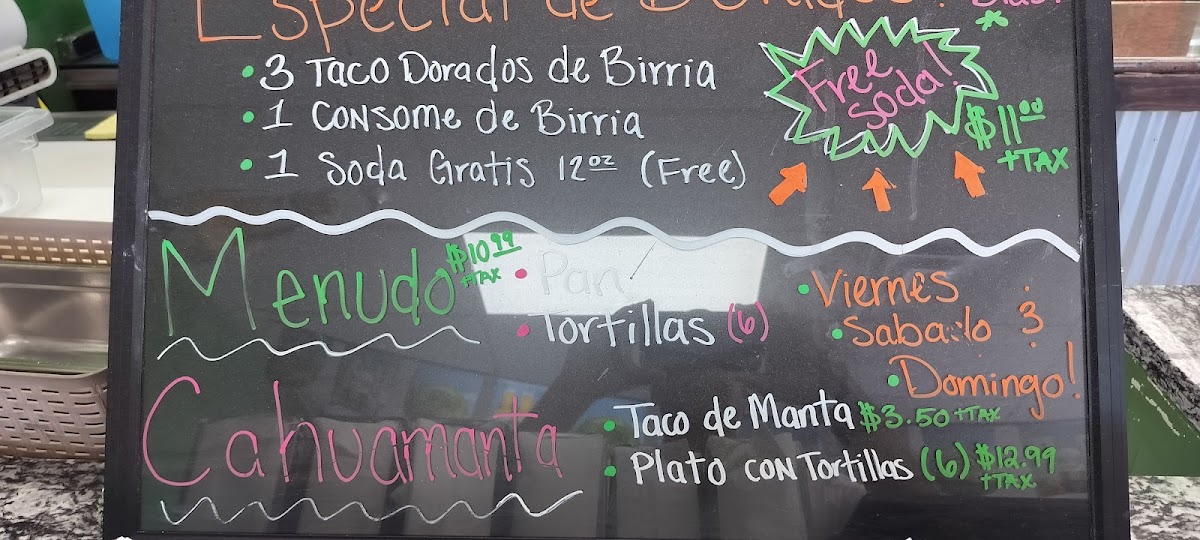 Especial de
• 3 Taco Dorados de Birria
• 1 Consome de Birria
• 1 Soda Gratis 12oz (Free)
Free
Soda!
$11.00
+TAX
Menudo
$10.99
+TAX
• Pan
• Tortillas (6)
• Viernes
• Sabado
• Domingo!
Cahuamanta
• Taco de Manta $3.50 +TAX
• Plato con Tortillas (6) $12.99
+TAX